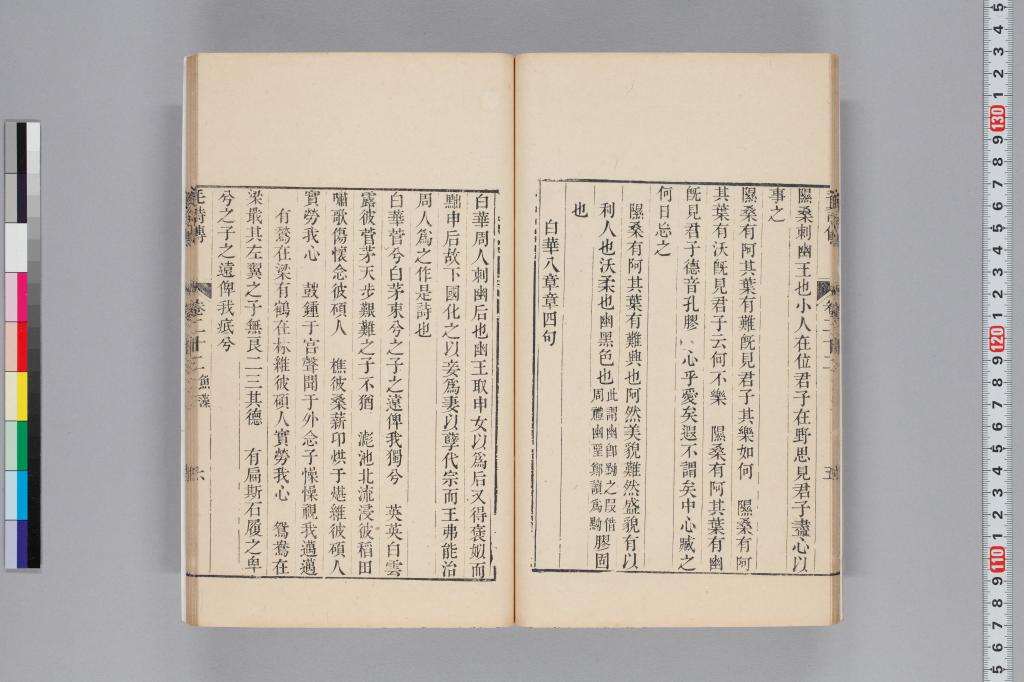 隰桑刺幽王也小人在位君子在野思見君子盡心以
事之
隰桑有阿其葉有難旣見君子其樂如何　隰桑有阿
其葉有沃旣見君子云何不樂　隰桑有阿其葉有幽
旣見君子德音孔膠　心乎愛矣遐不謂矣中心臧之
何日忘之
隰桑有阿其葉有難興也阿然美貌難然盛貌有以
利人也沃柔也幽黑色也此謂幽卽黝之叚借周禮幽堊鄭讀爲黝膠固
也
白華八章章四句
卷二十二
五
白華周人刺幽后也幽王取申女以爲后又得褒姒而
黜申后故下國化之以妾爲妻以孽代宗而王弗能治
周人爲之作是詩也
白華菅兮白茅束兮之子之遠俾我獨兮　英英白雲
露彼菅茅天步艱難之子不猶　滮池北流浸彼稻田
嘯歌傷懷念彼碩人　樵彼桑薪卬烘于煁維彼碩人
實勞我心　鼓鍾于宮聲聞于外念子懆懆視我邁邁
有鶖在梁有鶴在林維彼碩人實勞我心　鴛鴦在
梁戢其左翼之子無良二三其德　有扁斯石履之卑
兮之子之遠俾我疧兮
毛詩傳
卷二十二
魚藻
六